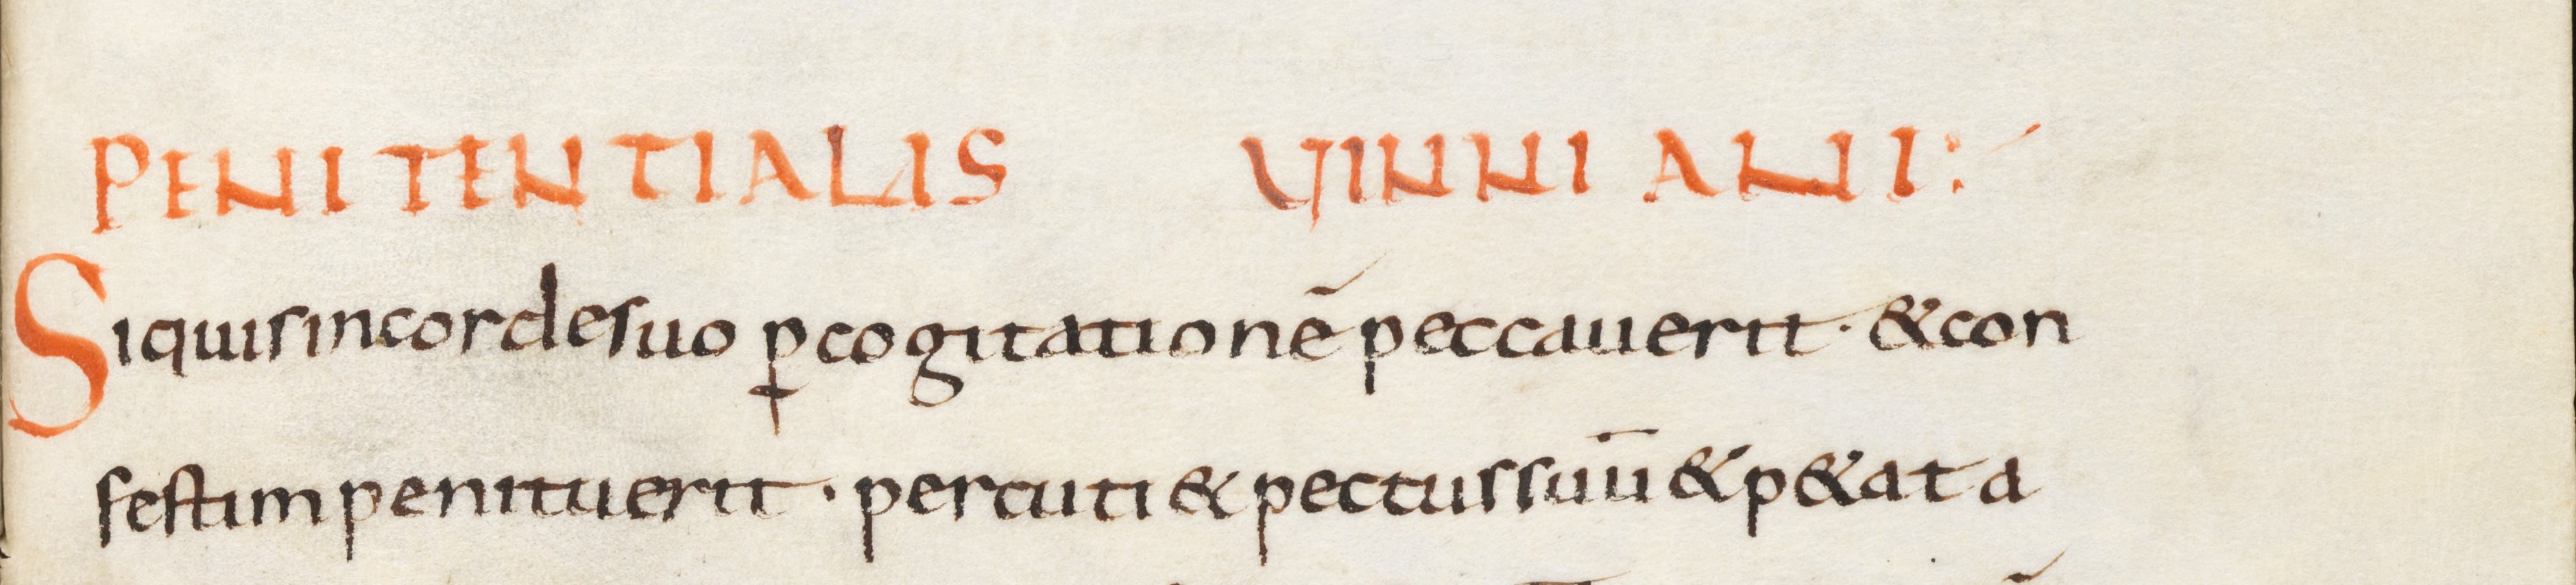 PENITENTIALIS VINNIANI:
Siquisincordesuo ꝑcogitationē peccauerit · &con
festim penituerit · percuti& pectussuū & p&at a